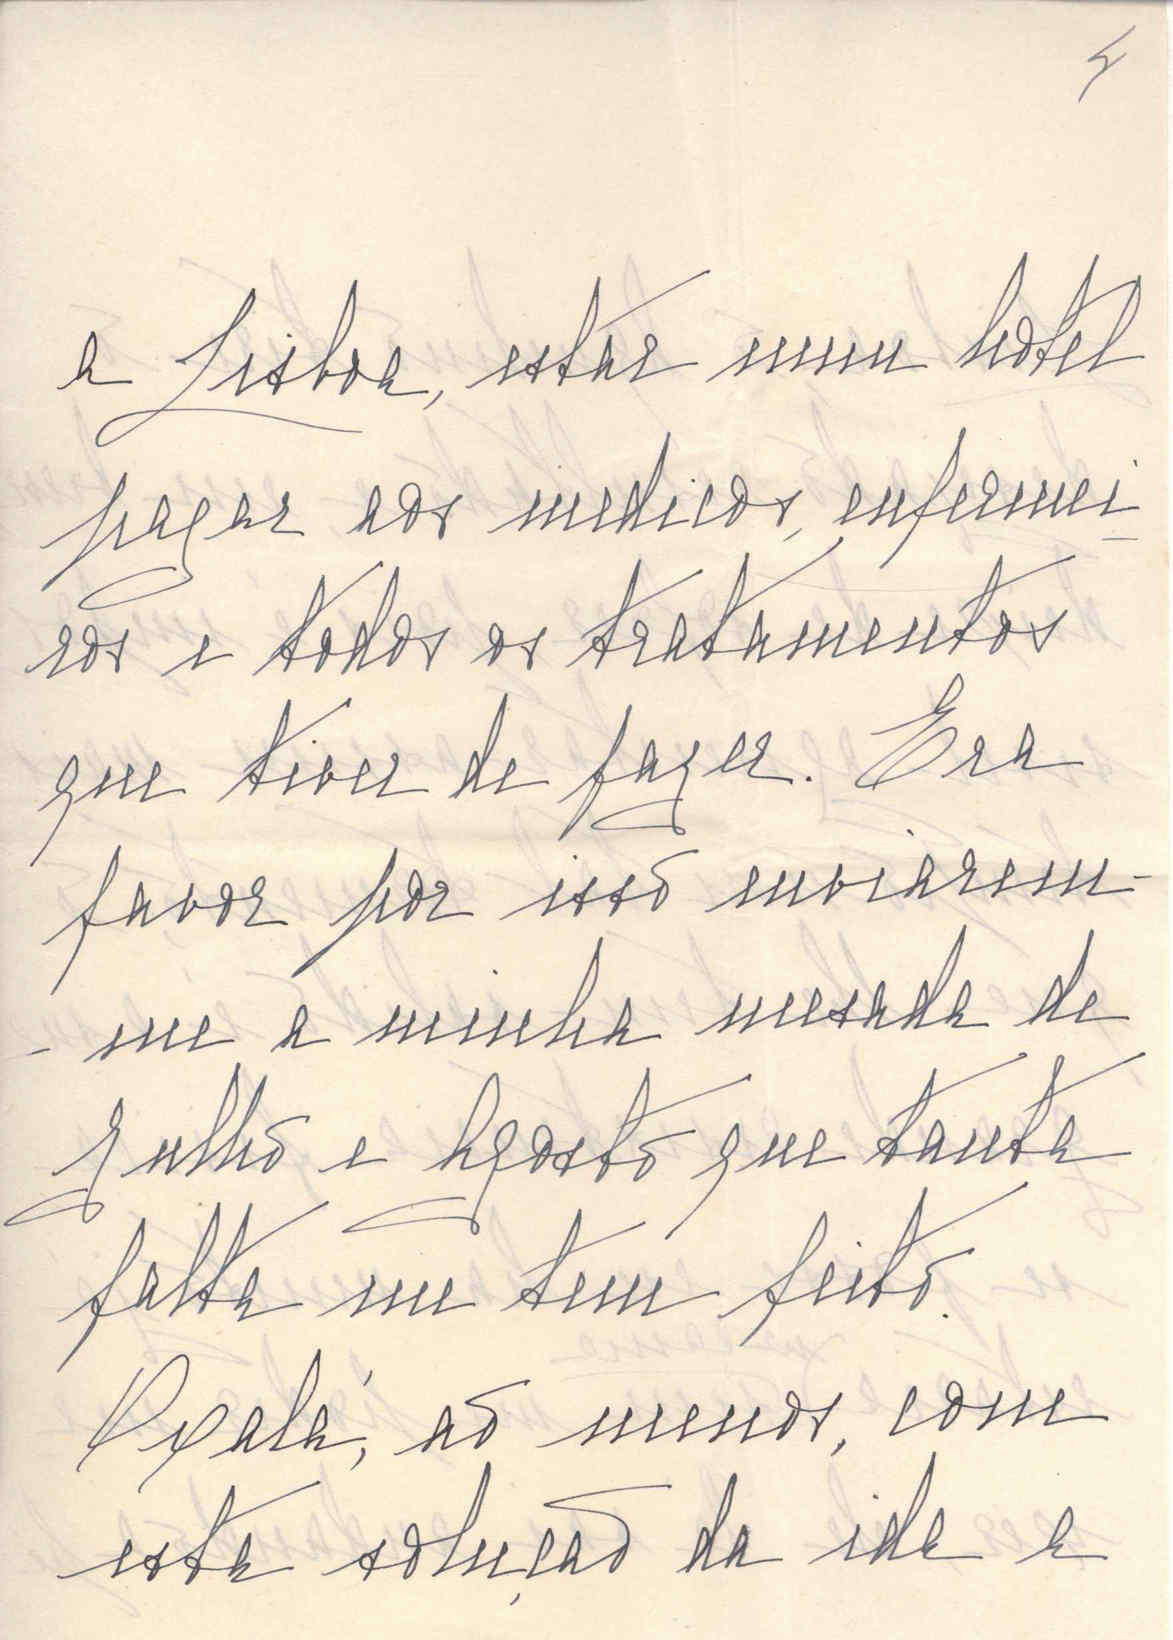 a Lisboa, estar num hotel
pagar aos medicos, enfermei
ros e todos os tratamentos
que tiver de fazer. Era
favor por isso enviarem-
- me a minha mesada de
Julho e Agosto que tanta
falta me tem feito.
Oxalá, ao menos, com
esta solução da ida a